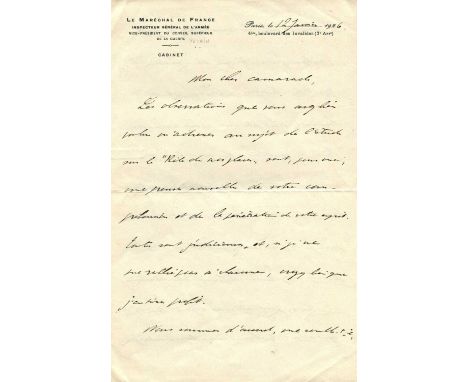 LE MARÉCHAL DE FRANCE
INSPECTEUR GÉNÉRAL DE L'ARMÉE
VICE-PRÉSIDENT DU CONSEIL SUPÉRIEUR
DE LA GUERRE
CABINET
Paris, le 1926
4bis, boulevard des Invalides (7e Arrt)
Mon cher camarade,
Les observations que vous avez bien
voulu m'adresser au sujet de l'étude
sur le "Rôle des places", sont, pour moi,
une preuve nouvelle de votre com-
pétence et de la pénétration de votre esprit.
Toutes sont judicieuses, et, si je ne
me rallie pas à chacune, croyez bien que
j'en tire profit.
Nous sommes d'accord, me semble-t-il,